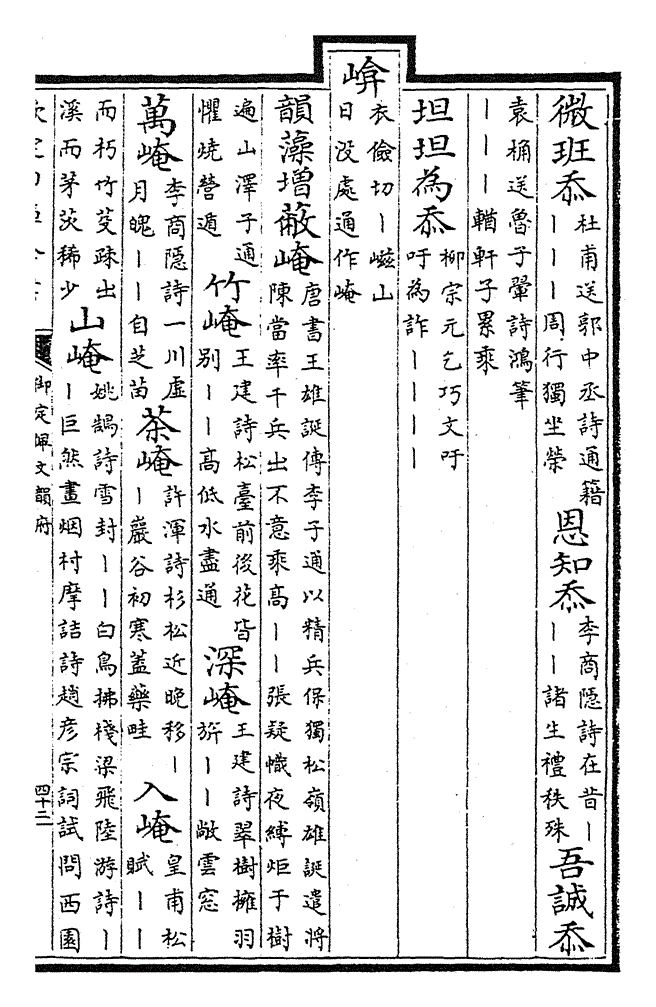 微班忝杜甫送郭中丞詩通籍｜｜｜周行獨坐榮 恩知忝李商隱詩在昔｜｜｜諸生禮秩殊 吾誠忝
袁桷送魯子翬詩鴻筆｜｜｜輶軒子累乘
坦坦為忝柳宗元乞巧文吁吁為詐｜｜｜｜
崦衣儉切｜嵫山日没處通作崦
韻藻增蔽崦唐書王雄誕傳李子通以精兵保獨松嶺雄誕遣將陳當率千兵出不意乘高｜｜張疑幟夜縛炬于樹
遍山澤子通懼燒營遁 竹崦王建詩松臺前後花皆别｜｜高低水盡通 深崦王建詩翠樹擁羽旂｜｜敞雲窓
萬崦李商隱詩一川虚月魄｜｜自芝苗 茶崦許渾詩杉松近晩移｜｜巖谷初寒蓋藥畦 入崦皇甫松賦｜｜
而朽竹芟疎出溪而茅茨稀少 山崦姚鵠詩雪封｜｜白鳥拂棧梁飛陸游詩｜｜巨然畫烟村摩詰詩趙彦宗詞試問西園
御定佩文韻府
四十二